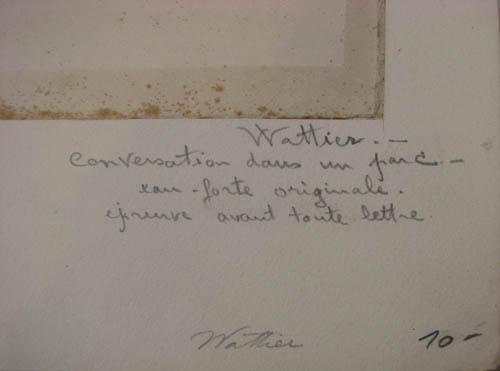 Wattier. —
Conversation dans un parc. —
eau-forte originale.
épreuve avant toute lettre.
Wattier
10 —